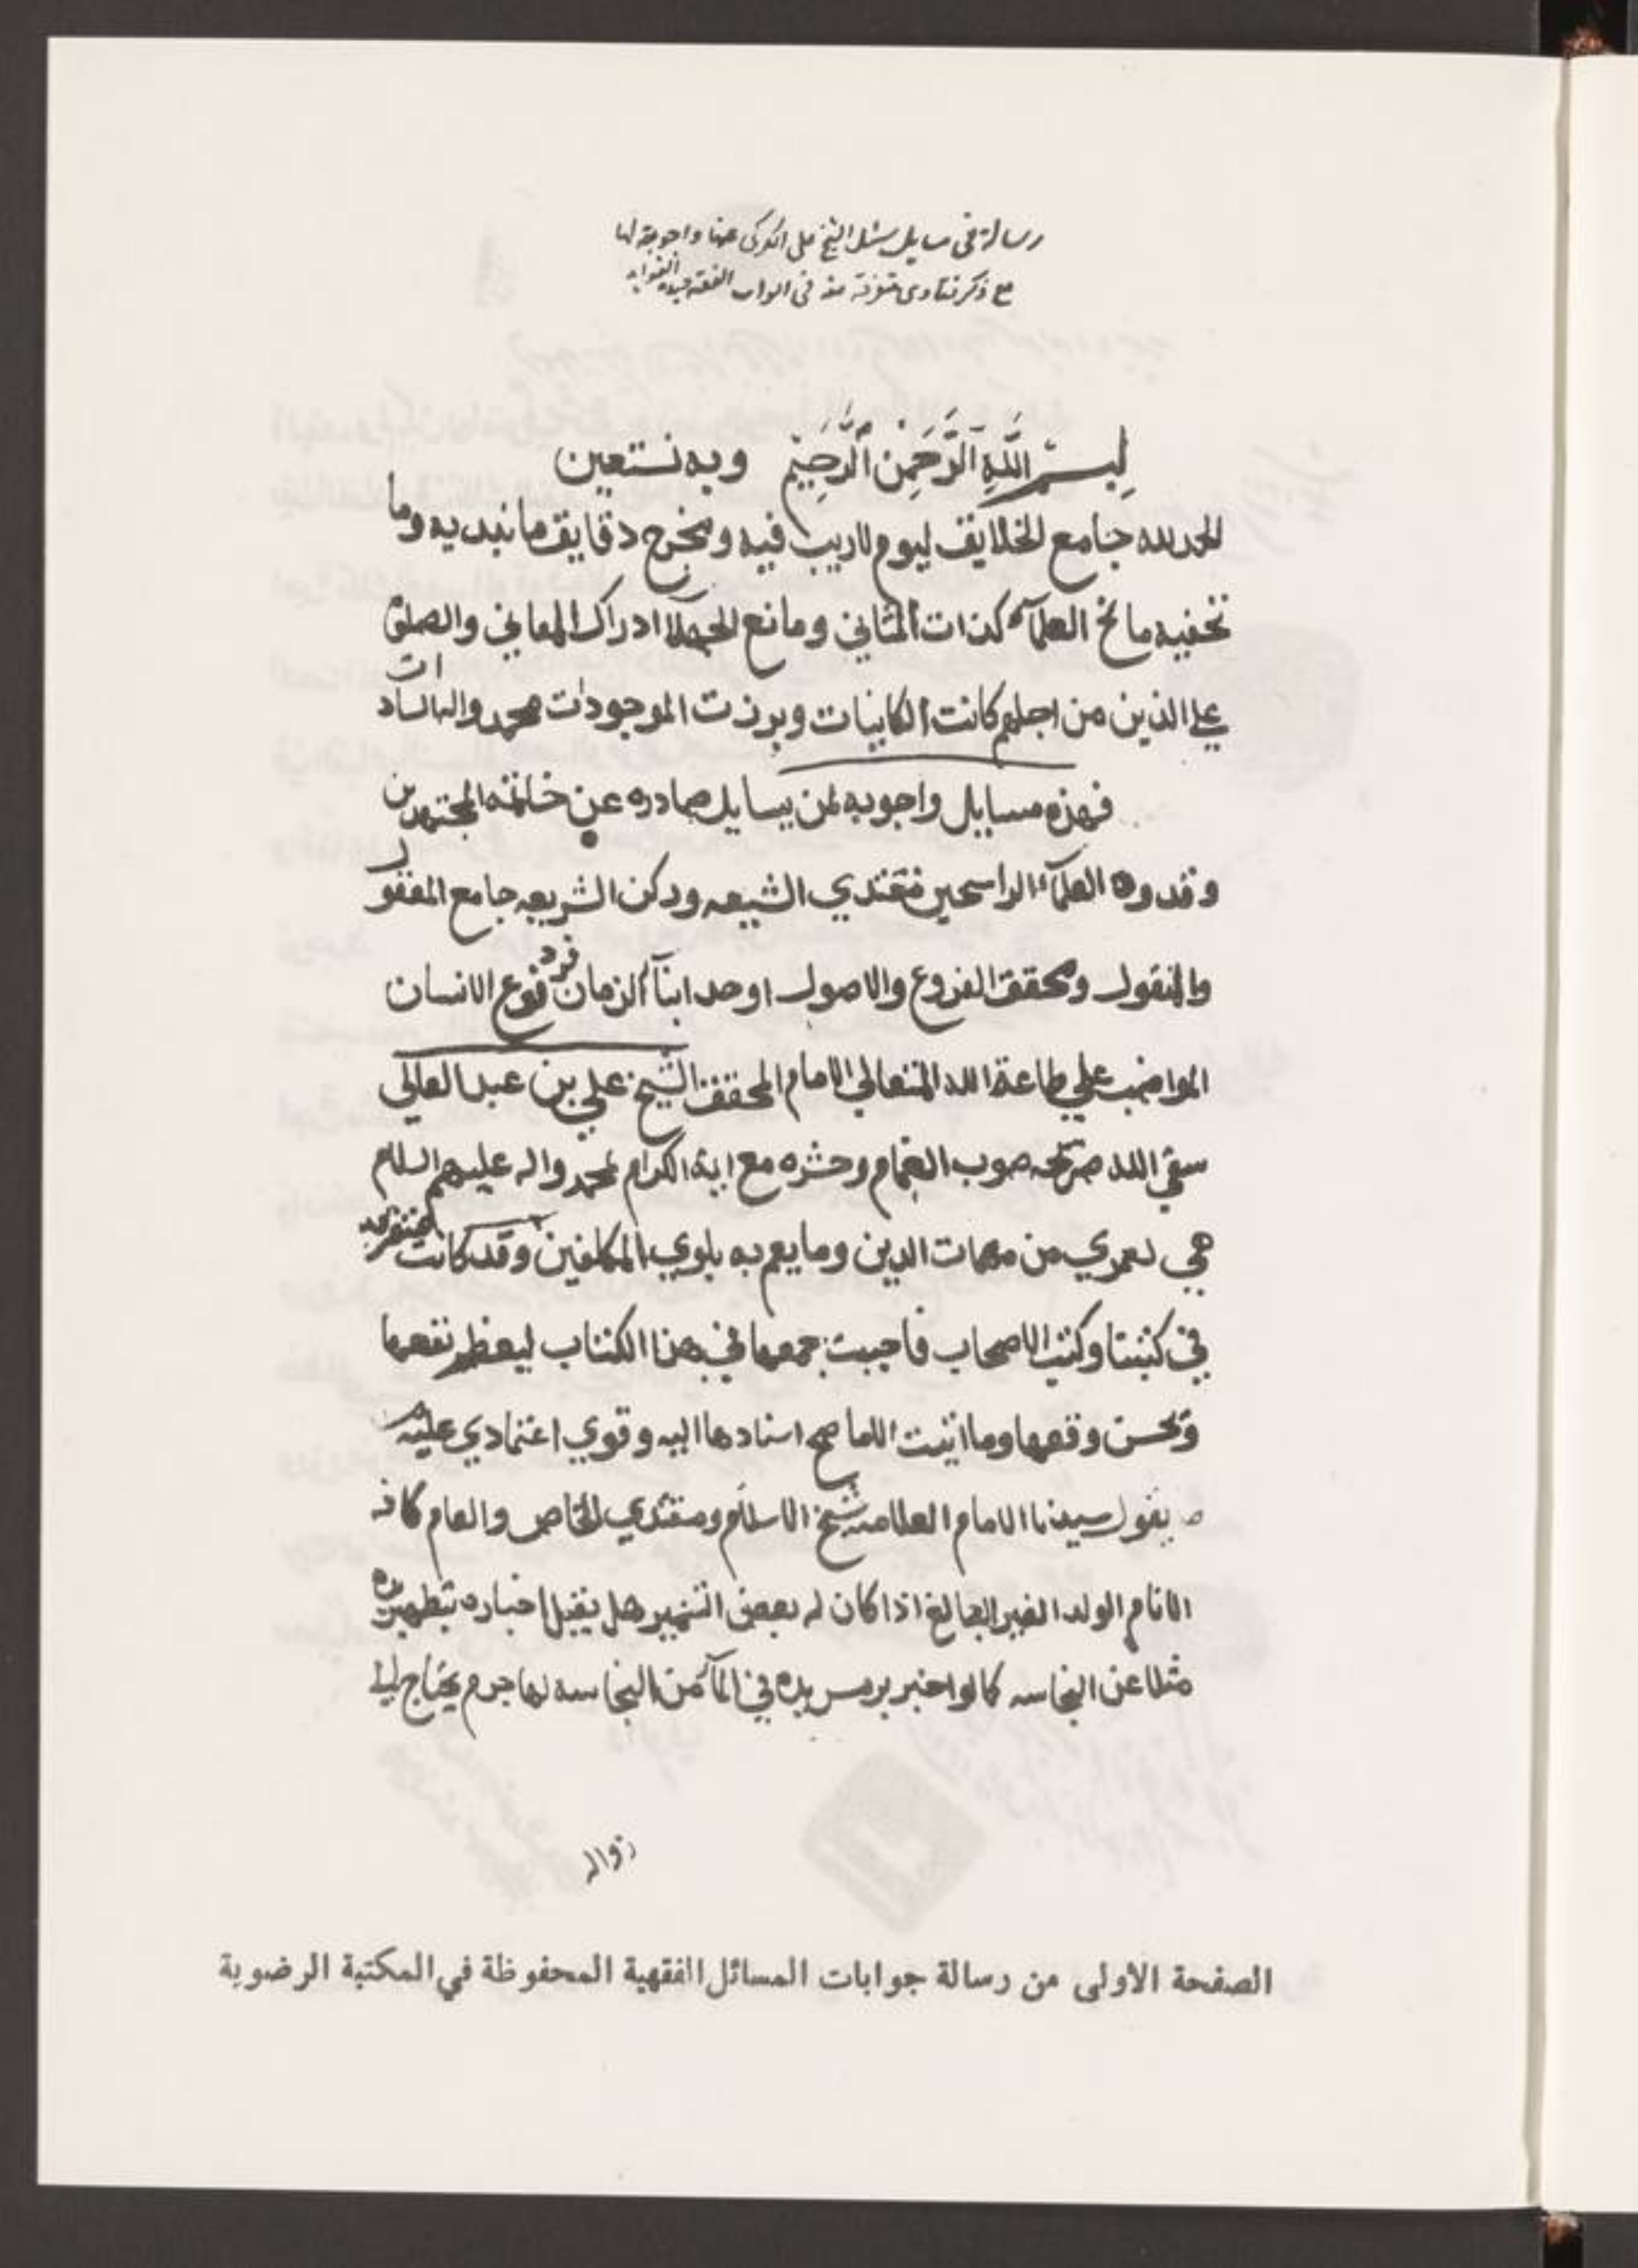 رسالة في مسايل سئل الشيخ علي الكركي عنها واجوبة لها
مع ذكر فتاوى متفرقة منه في ابواب الفقه
بِسْمِ اللَّهِ الرَّحْمٰنِ الرَّحِيمِ وبه نستعين
الحمد لله جامع الخلايق ليوم لا ريب فيه ومخرج دقايق ما نبديه وما
نخفيه مانح العلمآء كنذات المثاني ومانع الجهلا ادراك المعاني والصلوة
علي الذين من اجلهم كانت الكاينات وبرزت الموجودات محمد واله السادات
فهذه مسايل واجوبه لمن يسايل صادره عن خاتمة المجتهدين
وقدوه العلمآء الراسخين مقتدي الشيعه وركن الشريعه جامع المعقول
والمنقول ومحقق الفروع والاصول اوحد ابنآء الزمان فرد نوع الانسان
المواضب علي طاعة الله المتعالي الامام المحقق الشيخ علي بن عبد العالي
سقي الله ضريحه صوب الغمام وحشره مع ايمة الكرام محمد واله عليهم السلام
هي لعمري من مهمات الدين وما يعم به بلوي المكلفين وقد كانت متفرقه
في كتبنا وكتب الاصحاب فاحببت جمعها في هذا الكتاب ليعظم نفعها
ويحسن وقعها وما اثبت الا ما صح اسنادها اليه وقوي اعتمادي عليه
ما يقول سيدنا الامام العلامة شيخ الاسلام ومقتدي الخاص والعام كافه
الانام الولد الغير البالغ اذا كان له بعض التمييز هل يقبل اخباره بتطهير يده
مثلا عن النجاسه كما لو اخبر برمس يده في المآء من النجاسه لها جرم يحتاج الي
زواله
الصفحة الأولى من رسالة جوابات المسائل الفقهية المحفوظة في المكتبة الرضوية